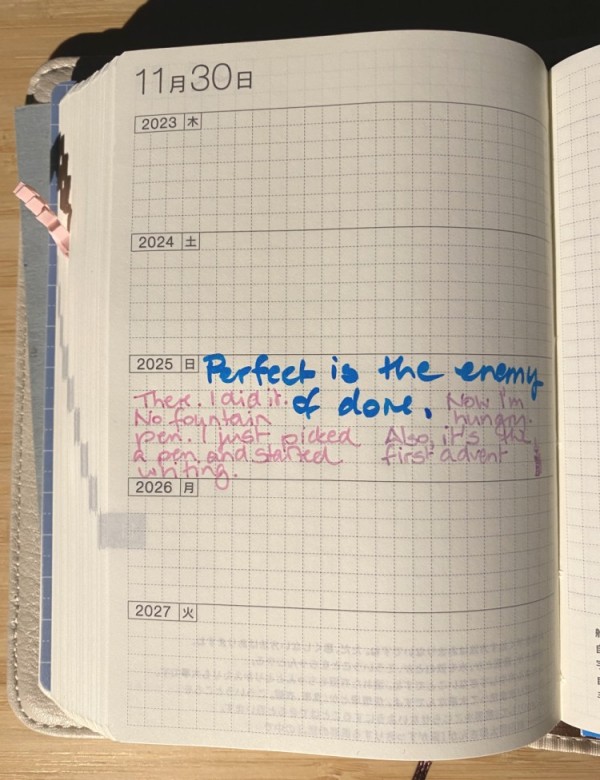 11月30日
2023 木
2024 土
2025 日 Perfect is the enemy
of done.
There. I did it.
No fountain
pen. I just picked
a pen and started
writing.
Now I'm
hungry.
Also, it's the
first advent
2026 月
2027 火